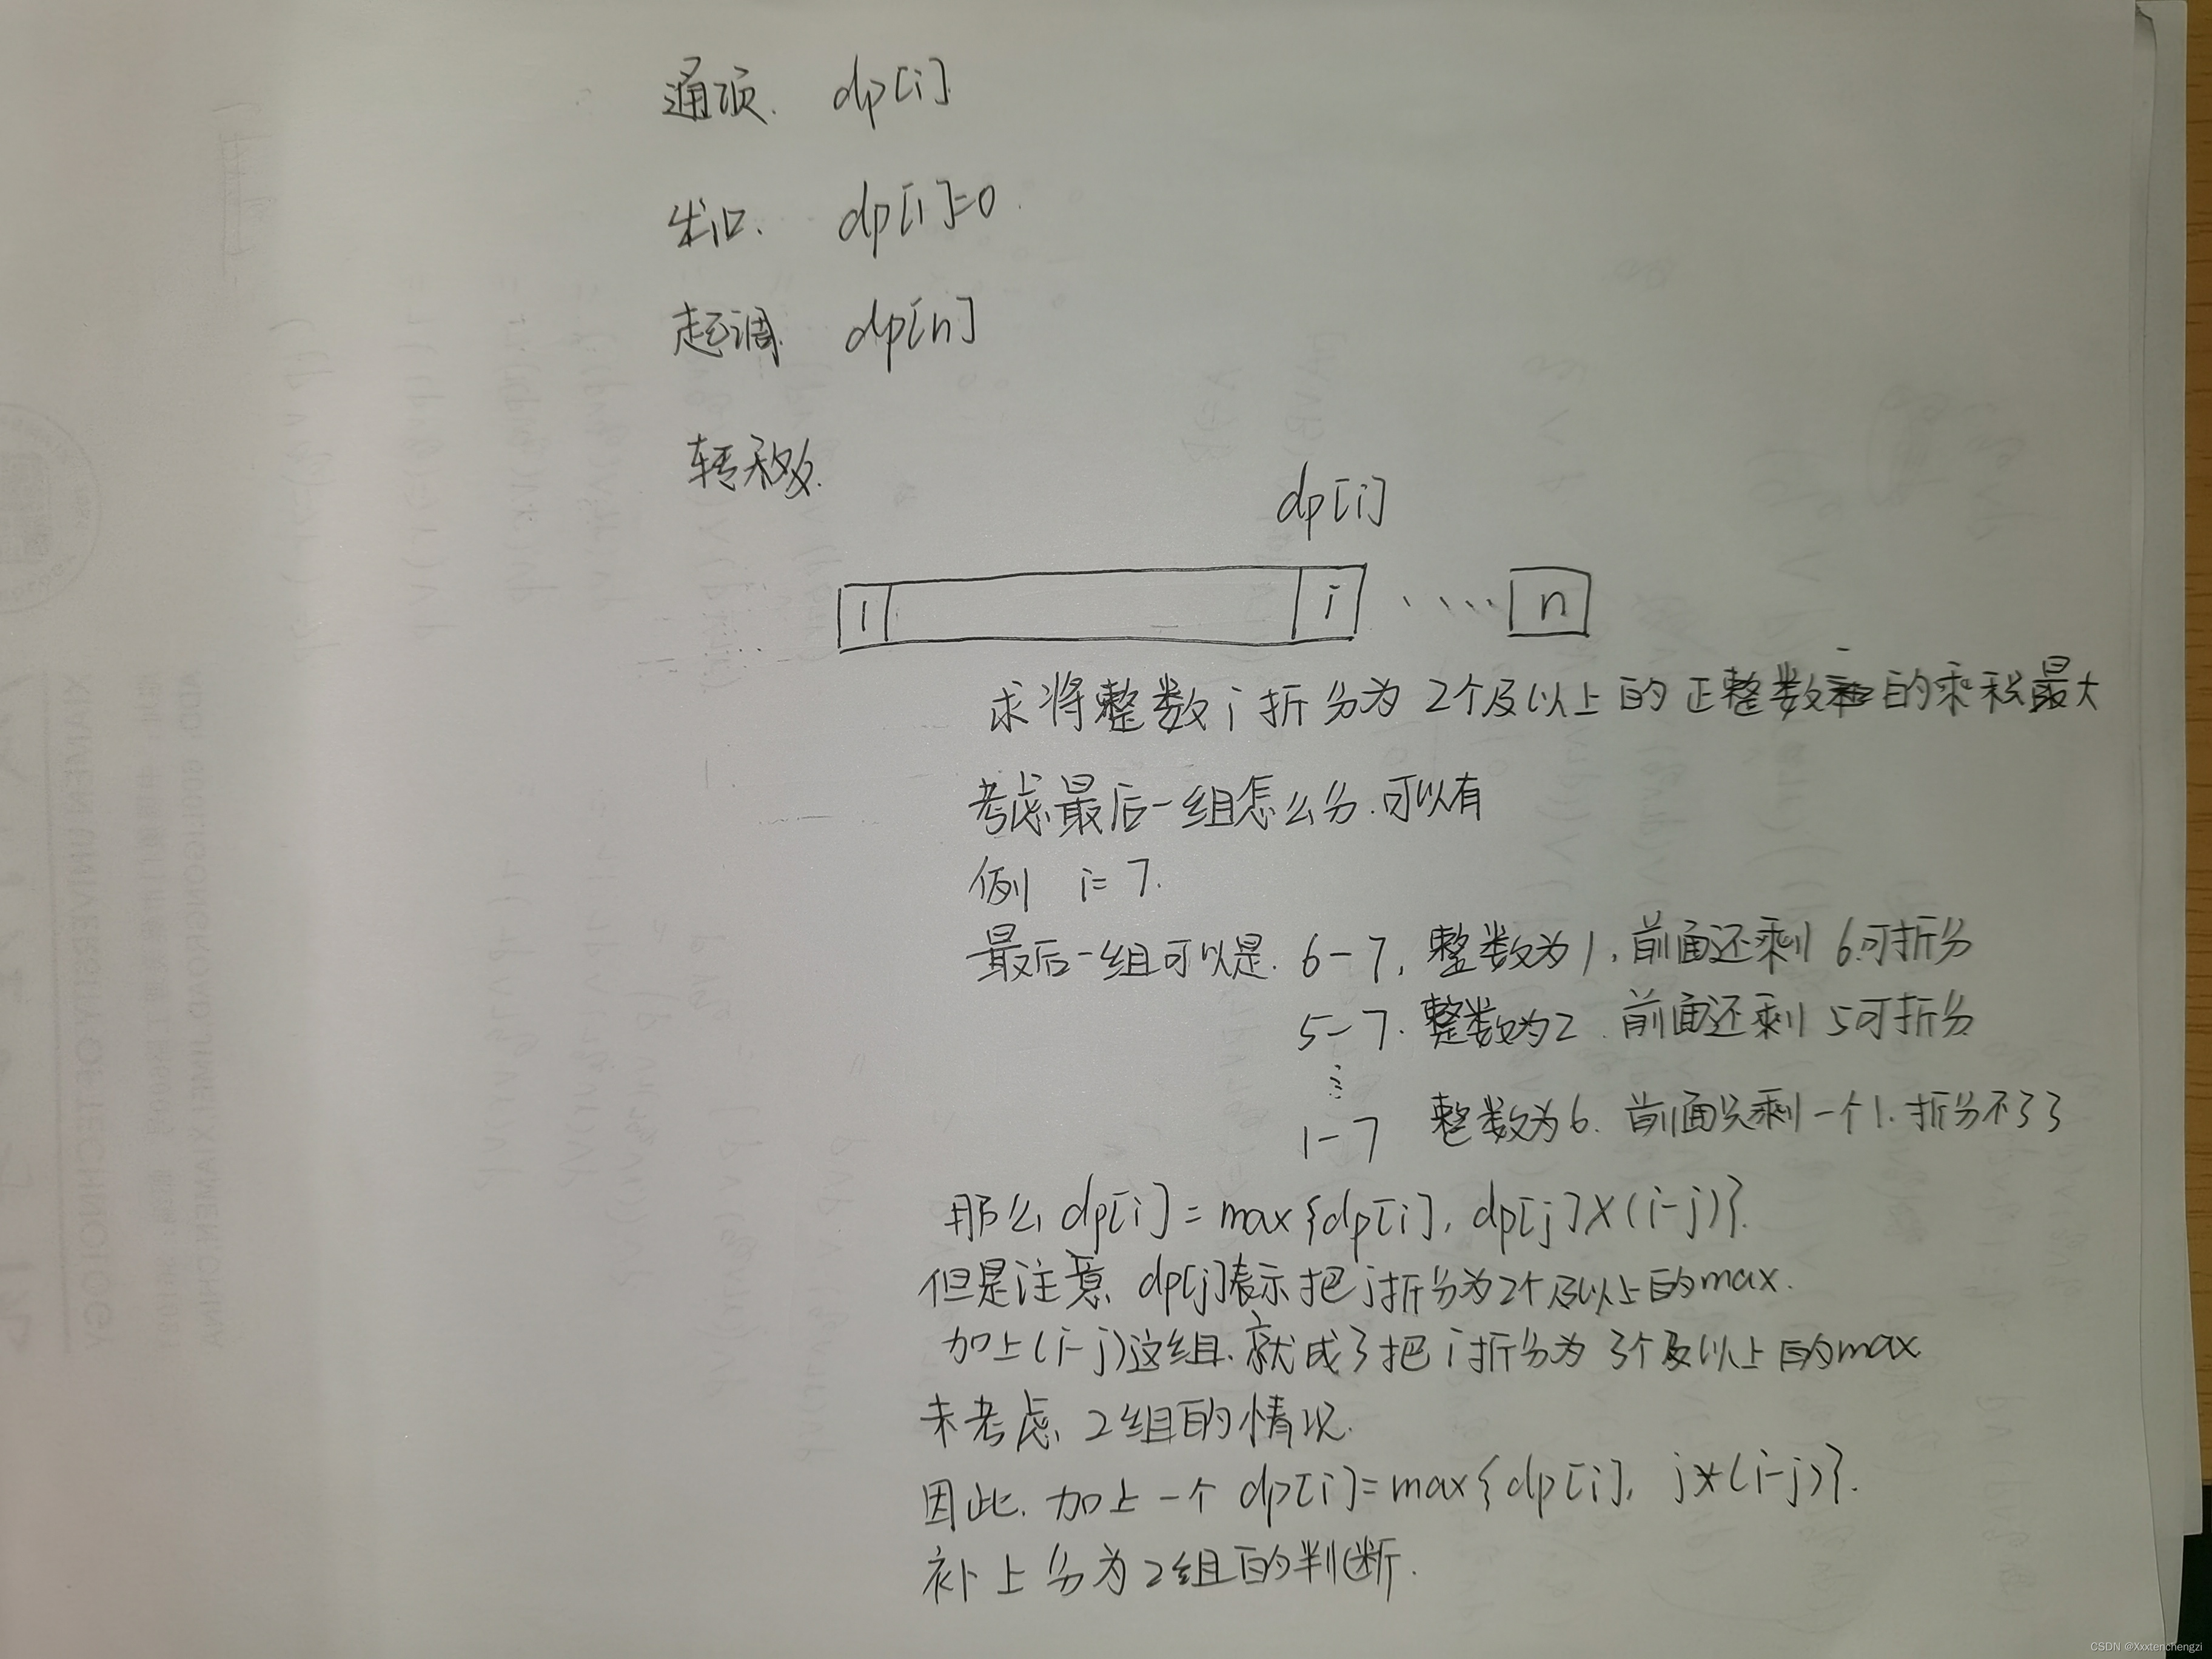 通项. dp[i]
出口. dp[1]=0.
起调 dp[n]
转移.
dp[i]
1 i ···· n
求将整数i拆分为2个及以上的正整数的乘积最大
考虑最后一组怎么分.可以有
例 i=7.
最后一组可以是. 6-7, 整数为1, 前面还剩6可拆分
5-7. 整数为2. 前面还剩5可拆分
⋮
1-7 整数为6. 前面只剩一个1. 拆分不了了
那么 dp[i]=max{dp[i], dp[j]×(i-j)}.
但是注意 dp[j]表示把j拆分为2个及以上的max.
加上(i-j)这组.就成了把i拆分为3个及以上的max
未考虑2组的情况.
因此.加上一个 dp[i]=max{dp[i], j*(i-j)}.
补上分为2组的判断.
CSDN @Xxxtenchengzi